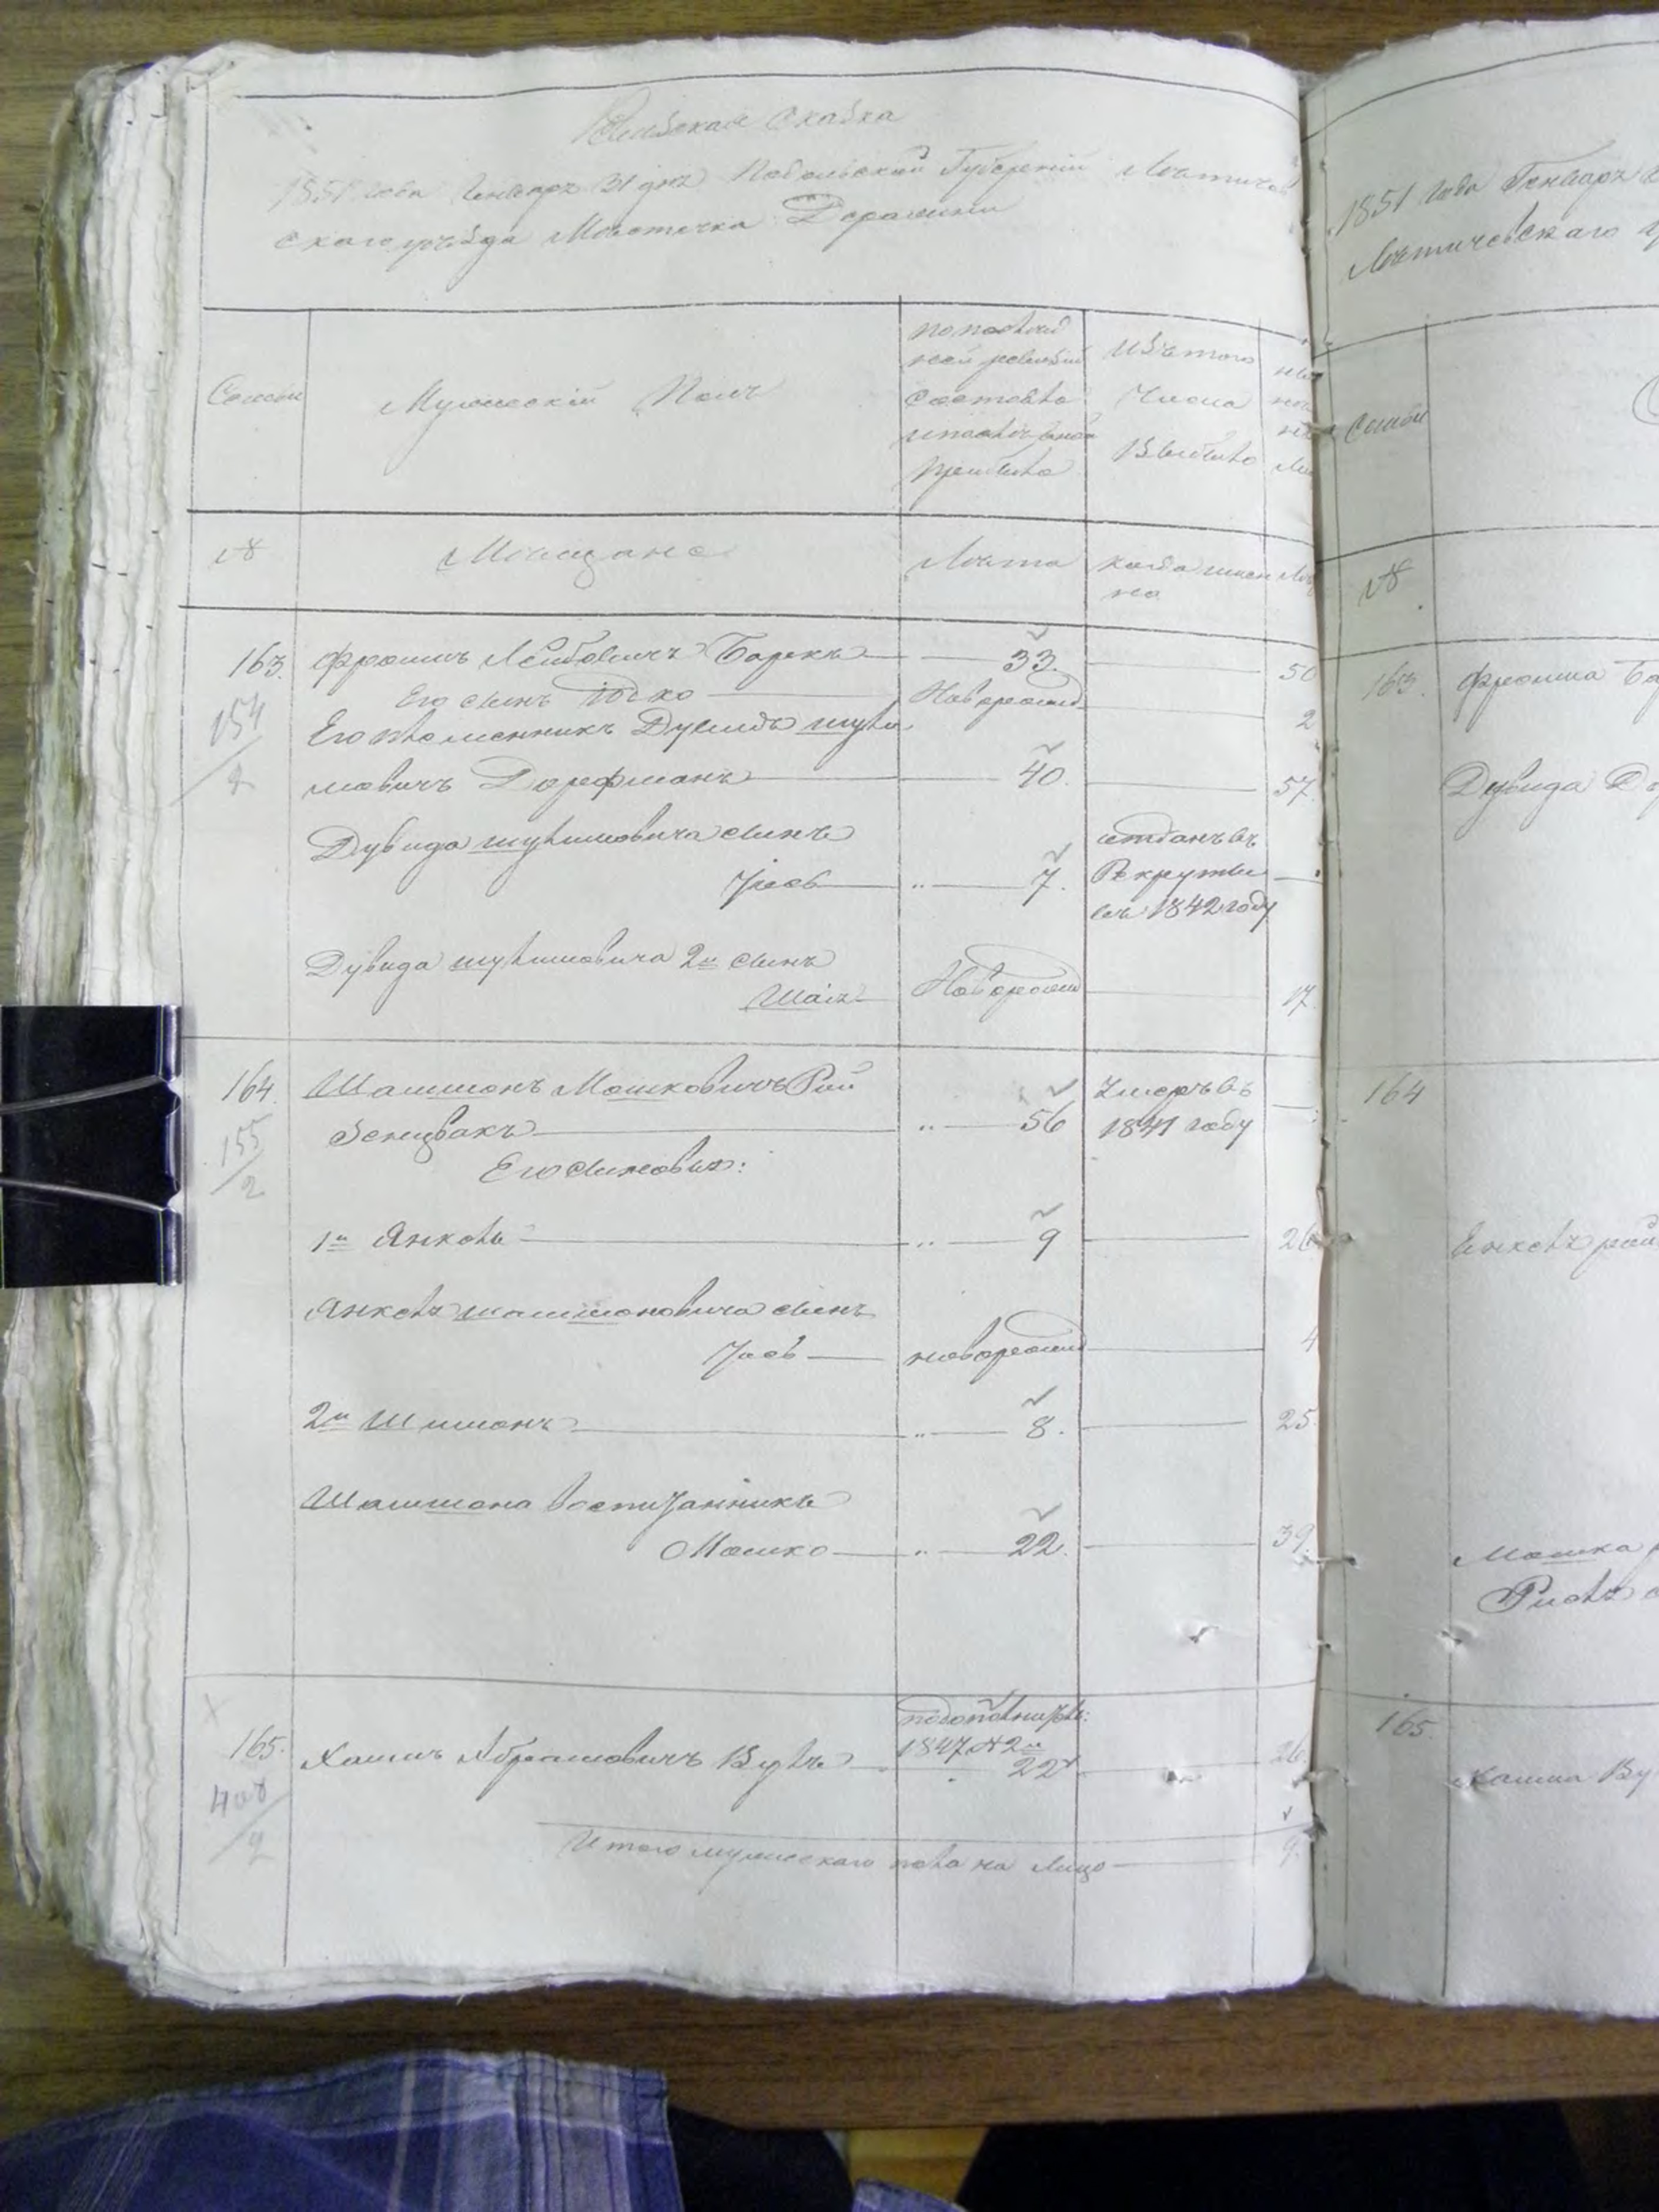 Ревизская Сказка
1851 года Генваря 31 дня Подольской Губерніи Летичев
скаго уезда Местечка Деражни
Семьи
Мужескій Полъ
по послед
ней ревизіи
состояло
и после оной
прибыло
Изъ того
Числа
Выбыло
№
Мещане
Лета
когда имен
но
163.
154
2
Фроимъ Лейбовичъ Барекъ
33.
50
Его сынъ Іоско
Новорожд
2
Его племенникъ Дувидъ Шулы
мовичъ Дорфманъ
40.
57.
Дувида Шулимовича сынъ
Іюсь
7.
отданъ въ
Рекруты
въ 1842 году
Дувида Шулимовича 2й сынъ
Шаія
Новорожд
17
164.
155
2
Шамшонъ Мошковичъ Рой
зенцвакъ
56
Умеръ въ
1841 году
Его сыновья:
1й Янкель
9
26
Янкеля Шамшоновича сынъ
Іюсь
новорожд
4
2й Шимонъ
8.
25
Шамшона воспитанникъ
Мошко
22.
39.
165.
408
2
Хаимъ Абрамовичъ Вулъ
1847 № 2й
22
26.
Итого мужескаго пола на лицо
9.
1851 года Генваря
Летичевскаго у
Семьи
№
163.
Фроима Ба
Дувида До
164
Янкеля рой
Мошка
165.
Хаима Ву